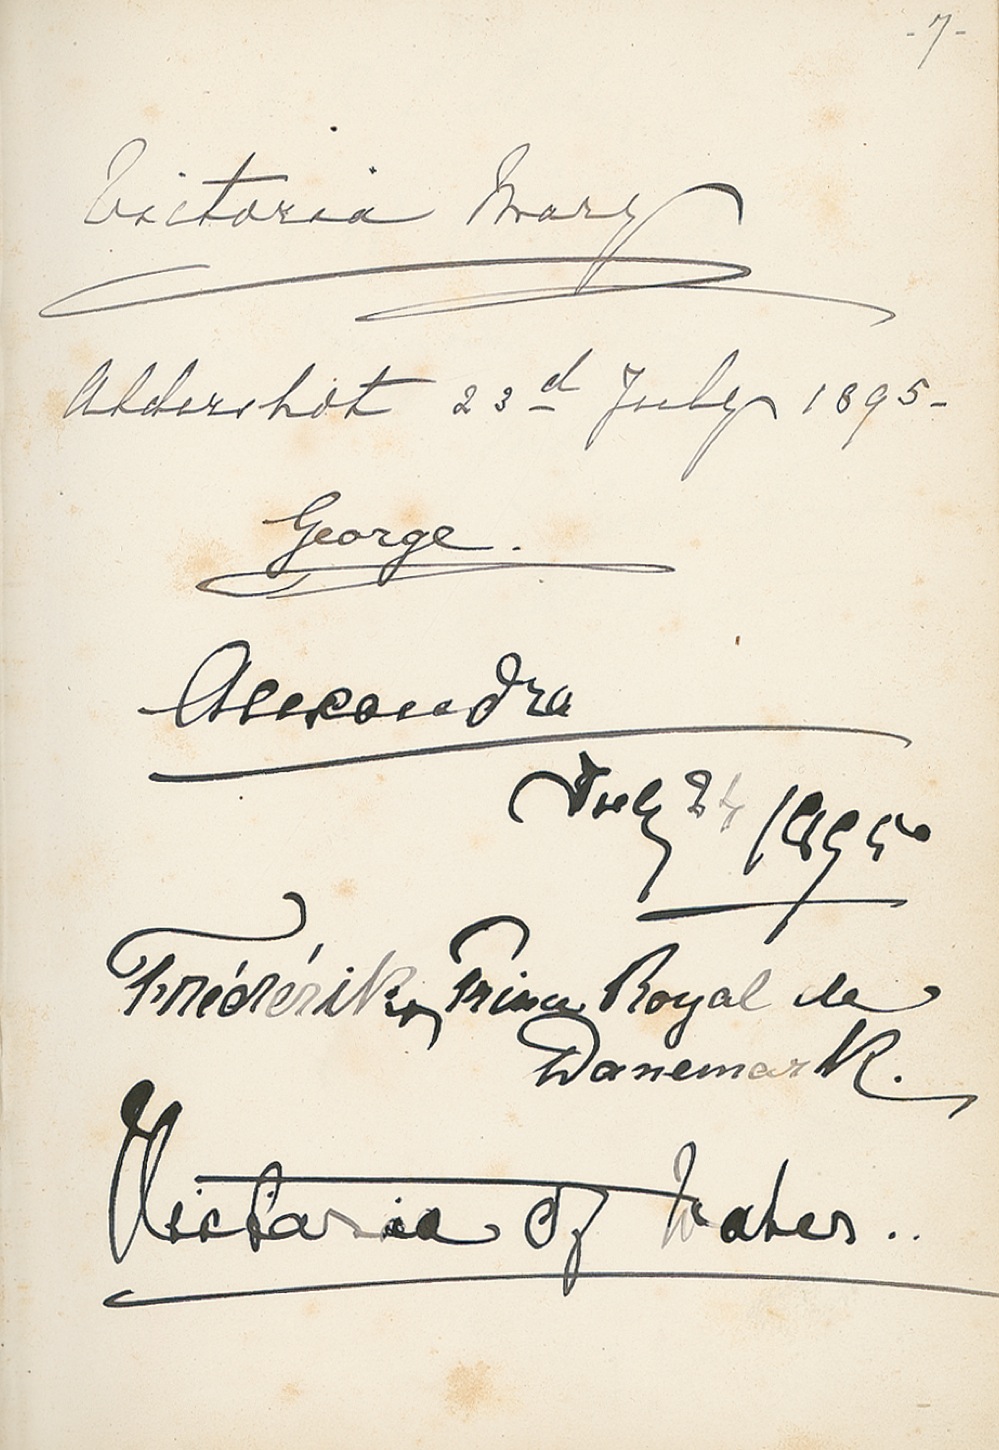 - 7 -
Victoria Mary
Aldershot 23d July 1895-
George.
Alexandra
July 24 1895
Frédérik, Prince Royal de
Danemark.
Victoria of Wales..